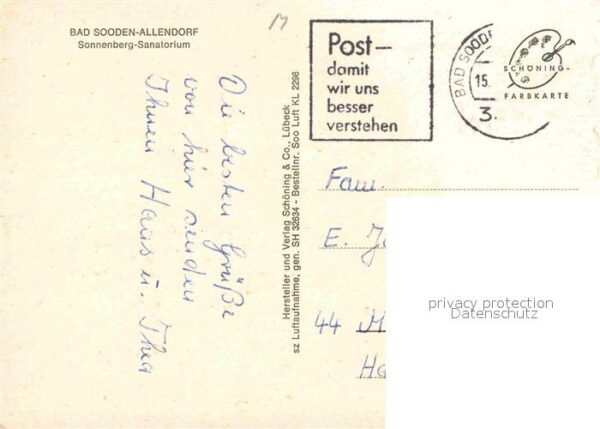 BAD SOODEN-ALLENDORF
Sonnenberg-Sanatorium
Die besten Grüße
von hier senden
Ihnen Hans u. Thea
Hersteller und Verlag Schöning & Co., Lübeck
sz Luftaufnahme, gen. SH 32634 - Bestellnr. Soo Luft KL 2298
Post –
damit
wir uns
besser
verstehen
BAD SOODE
15.
3.
SCHÖNING-
FARBKARTE
Fam.
E.
44
privacy protection
Datenschutz